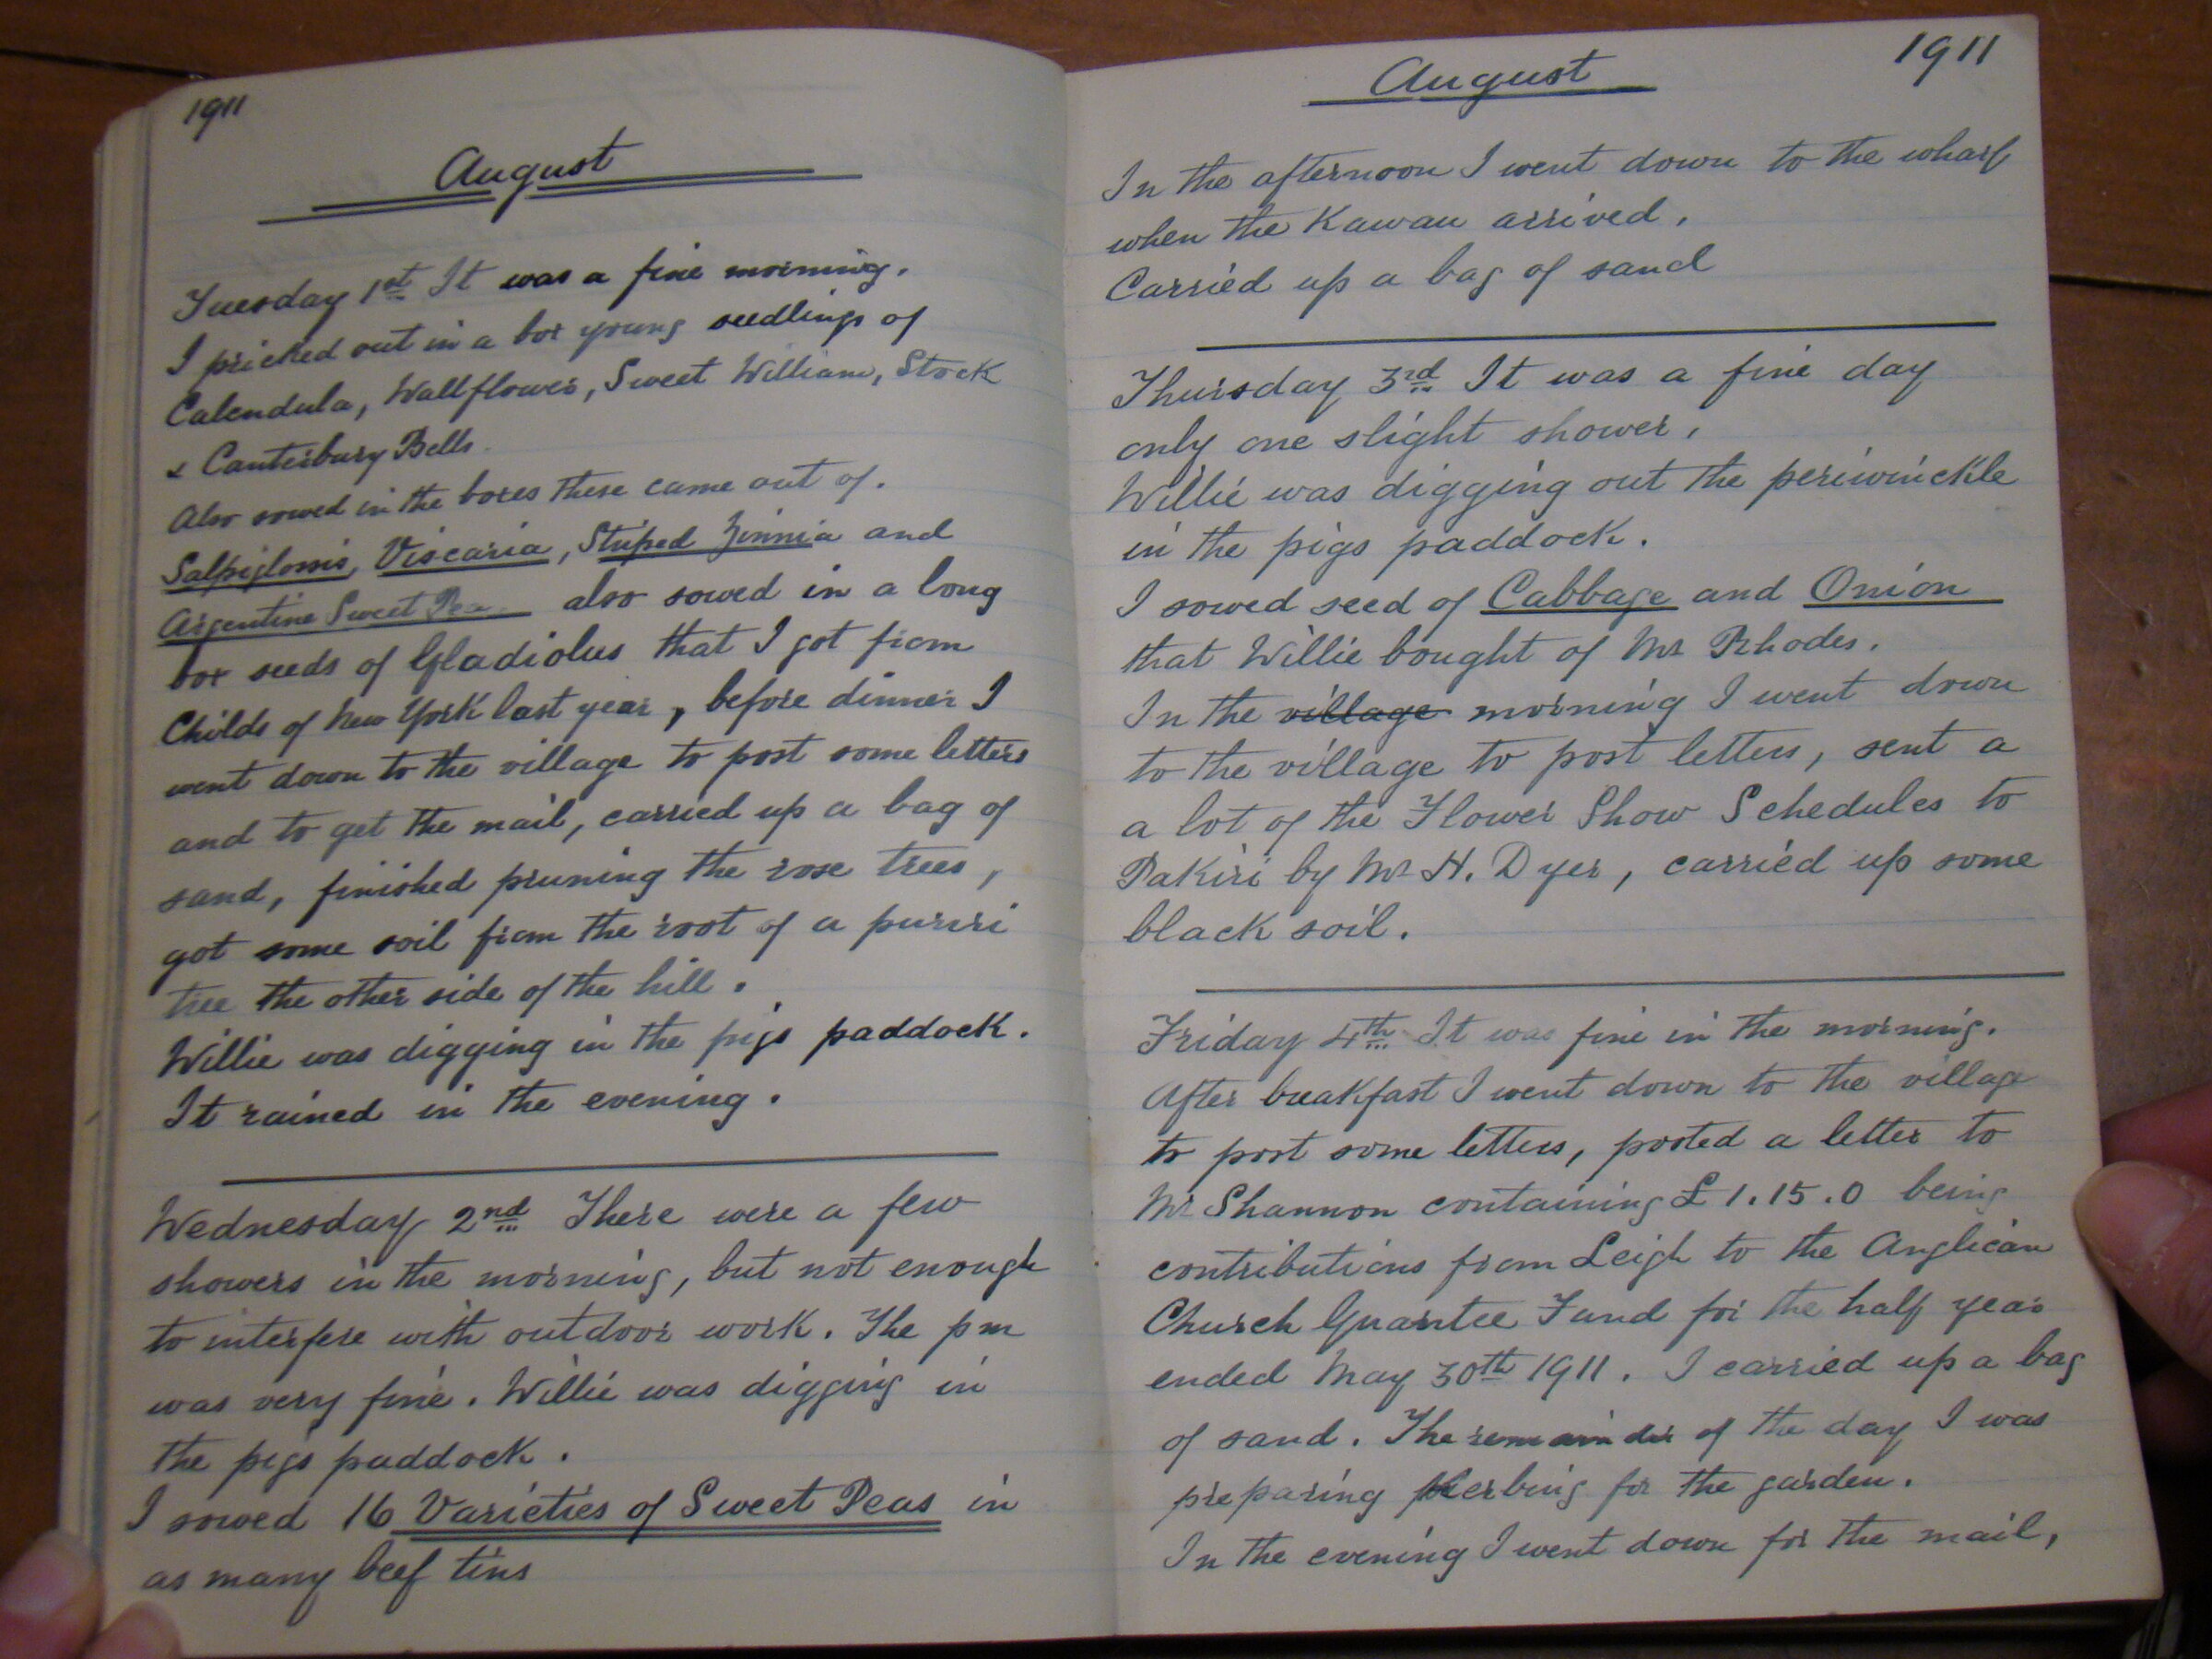 1911
August
Tuesday 1st It was a fine morning.
I pricked out in a box young seedlings of
Calendula, Wallflower, Sweet William, Stock
& Canterbury Bells.
Also sowed in the boxes these came out of.
Salpiglossis, Viscaria, Striped Zinnia and
Argentine Sweet Pea also sowed in a long
box seeds of Gladiolus that I got from
Childs of New York last year, before dinner I
went down to the village to post some letters
and to get the mail, carried up a bag of
sand, finished pruning the rose trees,
got some soil from the root of a puriri
tree the other side of the hill.
Willie was digging in the pigs paddock.
It rained in the evening.
Wednesday 2nd There were a few
showers in the morning, but not enough
to interfere with outdoor work. The pm
was very fine. Willie was digging in
the pigs paddock.
I sowed 16 Varieties of Sweet Peas in
as many beef tins
August 1911
In the afternoon I went down to the wharf
when the Kawau arrived.
Carried up a bag of sand
Thursday 3rd It was a fine day
only one slight shower.
Willie was digging out the periwinckle
in the pigs paddock.
I sowed seed of Cabbage and Onion
that Willie bought of Mr Rhodes.
In the village morning I went down
to the village to post letters, sent a
a lot of the Flower Show Schedules to
Pakiri by Mr H. Dyer, carried up some
black soil.
Friday 4th It was fine in the morning.
After breakfast I went down to the village
to post some letters, posted a letter to
Mr Shannon containing £1.15.0 being
contributions from Leigh to the Anglican
Church Guarntee Fund for the half year
ended May 30th 1911. I carried up a bag
of sand. The remainder of the day I was
preparing kerbing for the garden.
In the evening I went down for the mail,